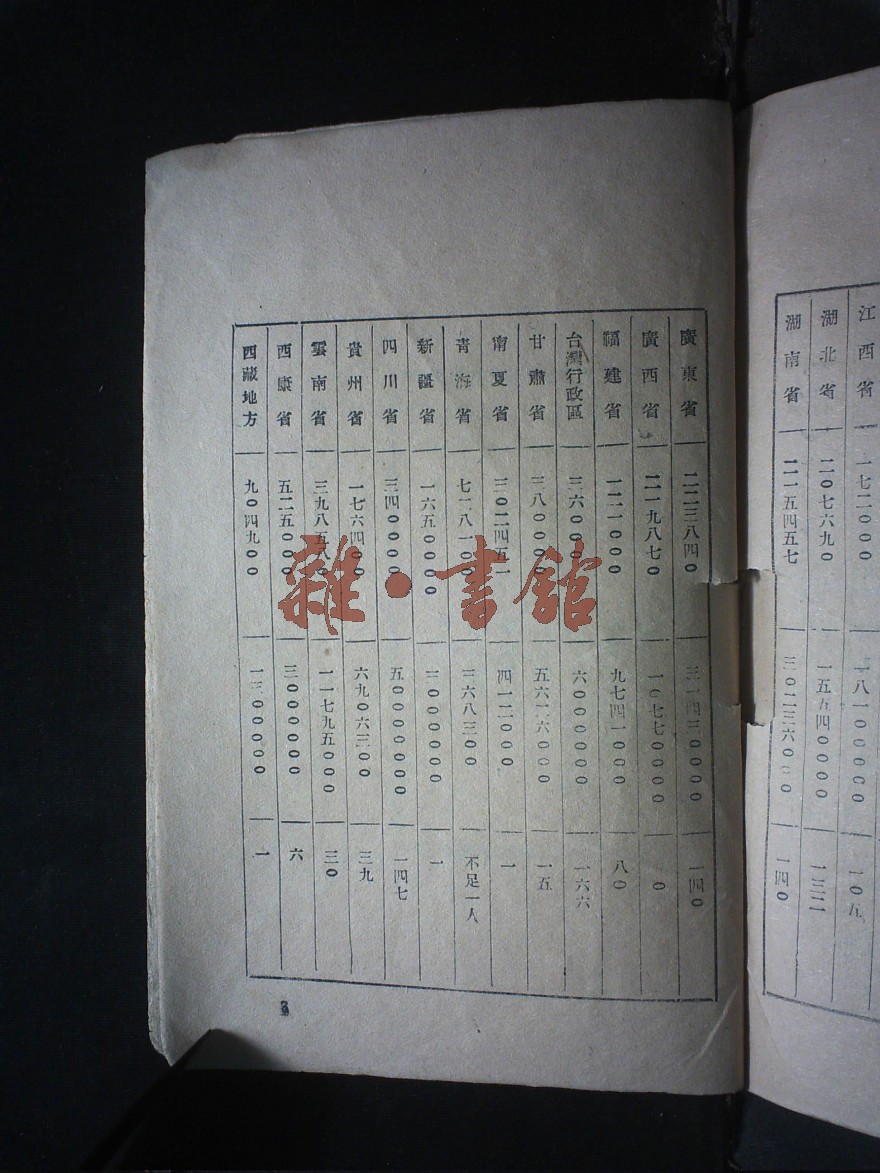 江西省 一七二〇〇〇 一〇五
湖北省 二〇七六九〇 一五五四〇〇〇〇 一三二
湖南省 二一五四五七 三〇二三六〇〇〇 一四〇
廣東省 二二三八四〇 三一四三〇〇〇〇 一四〇
廣西省 二一九八七〇 一〇七七〇〇〇〇
福建省 一二一〇〇〇 九七四一〇〇〇 八〇
台灣行政區 三六〇〇〇 六〇〇〇〇〇〇 一六六
甘肅省 三八〇〇〇〇 五六二六〇〇〇 一五
甯夏省 四一二〇〇〇 一
青海省 三六八三〇〇 不足一人
新疆省 一六五〇〇〇〇 一
四川省 三四〇〇〇〇 五〇〇〇〇〇〇〇 一四七
貴州省 一七六四〇〇 六九〇六三〇〇 三九
雲南省 三九八五八〇 一一七九五〇〇〇 三〇
西康省 五二五〇〇〇 三〇〇〇〇〇〇 六
西藏地方 九〇四九〇〇 一三〇〇〇〇〇 一
雜·書館